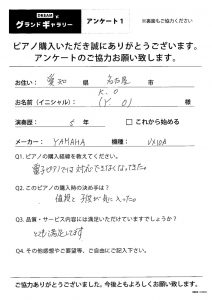 DREAM ピ
グランドギャラリー アンケート1 ※裏面もご協力ください
ピアノ購入いただき誠にありがとうございます。
アンケートのご協力お願い致します。
お住い： 愛知 県 名古屋
K.O
お名前（イニシャル）：（ Y O ）様
演奏歴： 5 年 □ これから始める
メーカー： YAMAHA 機種： UX10A
Q1. ピアノの購入経緯を教えてください。
電子ピアノでは対応できなくなってきた。
Q2. このピアノの購入時の決め手は？
値段と子供が気に入った
Q3. 品質・サービス内容には満足いただけていますでしょうか？
とても満足してます
Q4. その他感想やご要望等、ご自由にご記入下さい。
ご協力ありがとうございました。今後ともよろしくお願い致します。